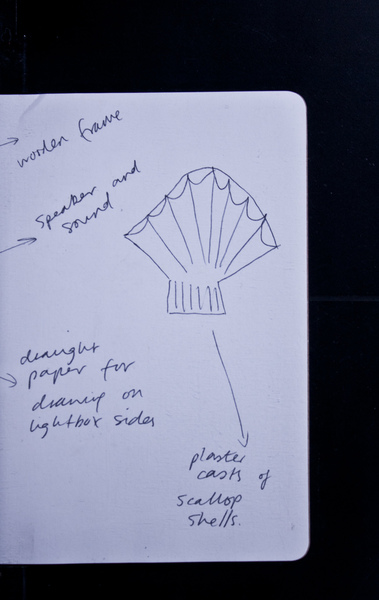 wooden frame
speaker and
sound.
draught
paper for
drawing on
lightbox sides
plaster
casts of
scallop
shells.